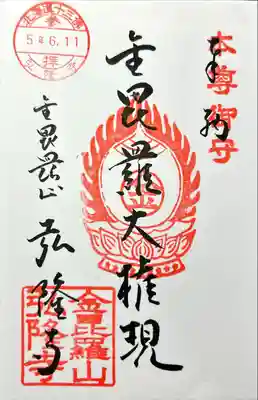 本尊御守
奉拝
金毘羅大権現
金毘羅山
弘隆寺
5.6.11
金毘羅山
弘隆寺